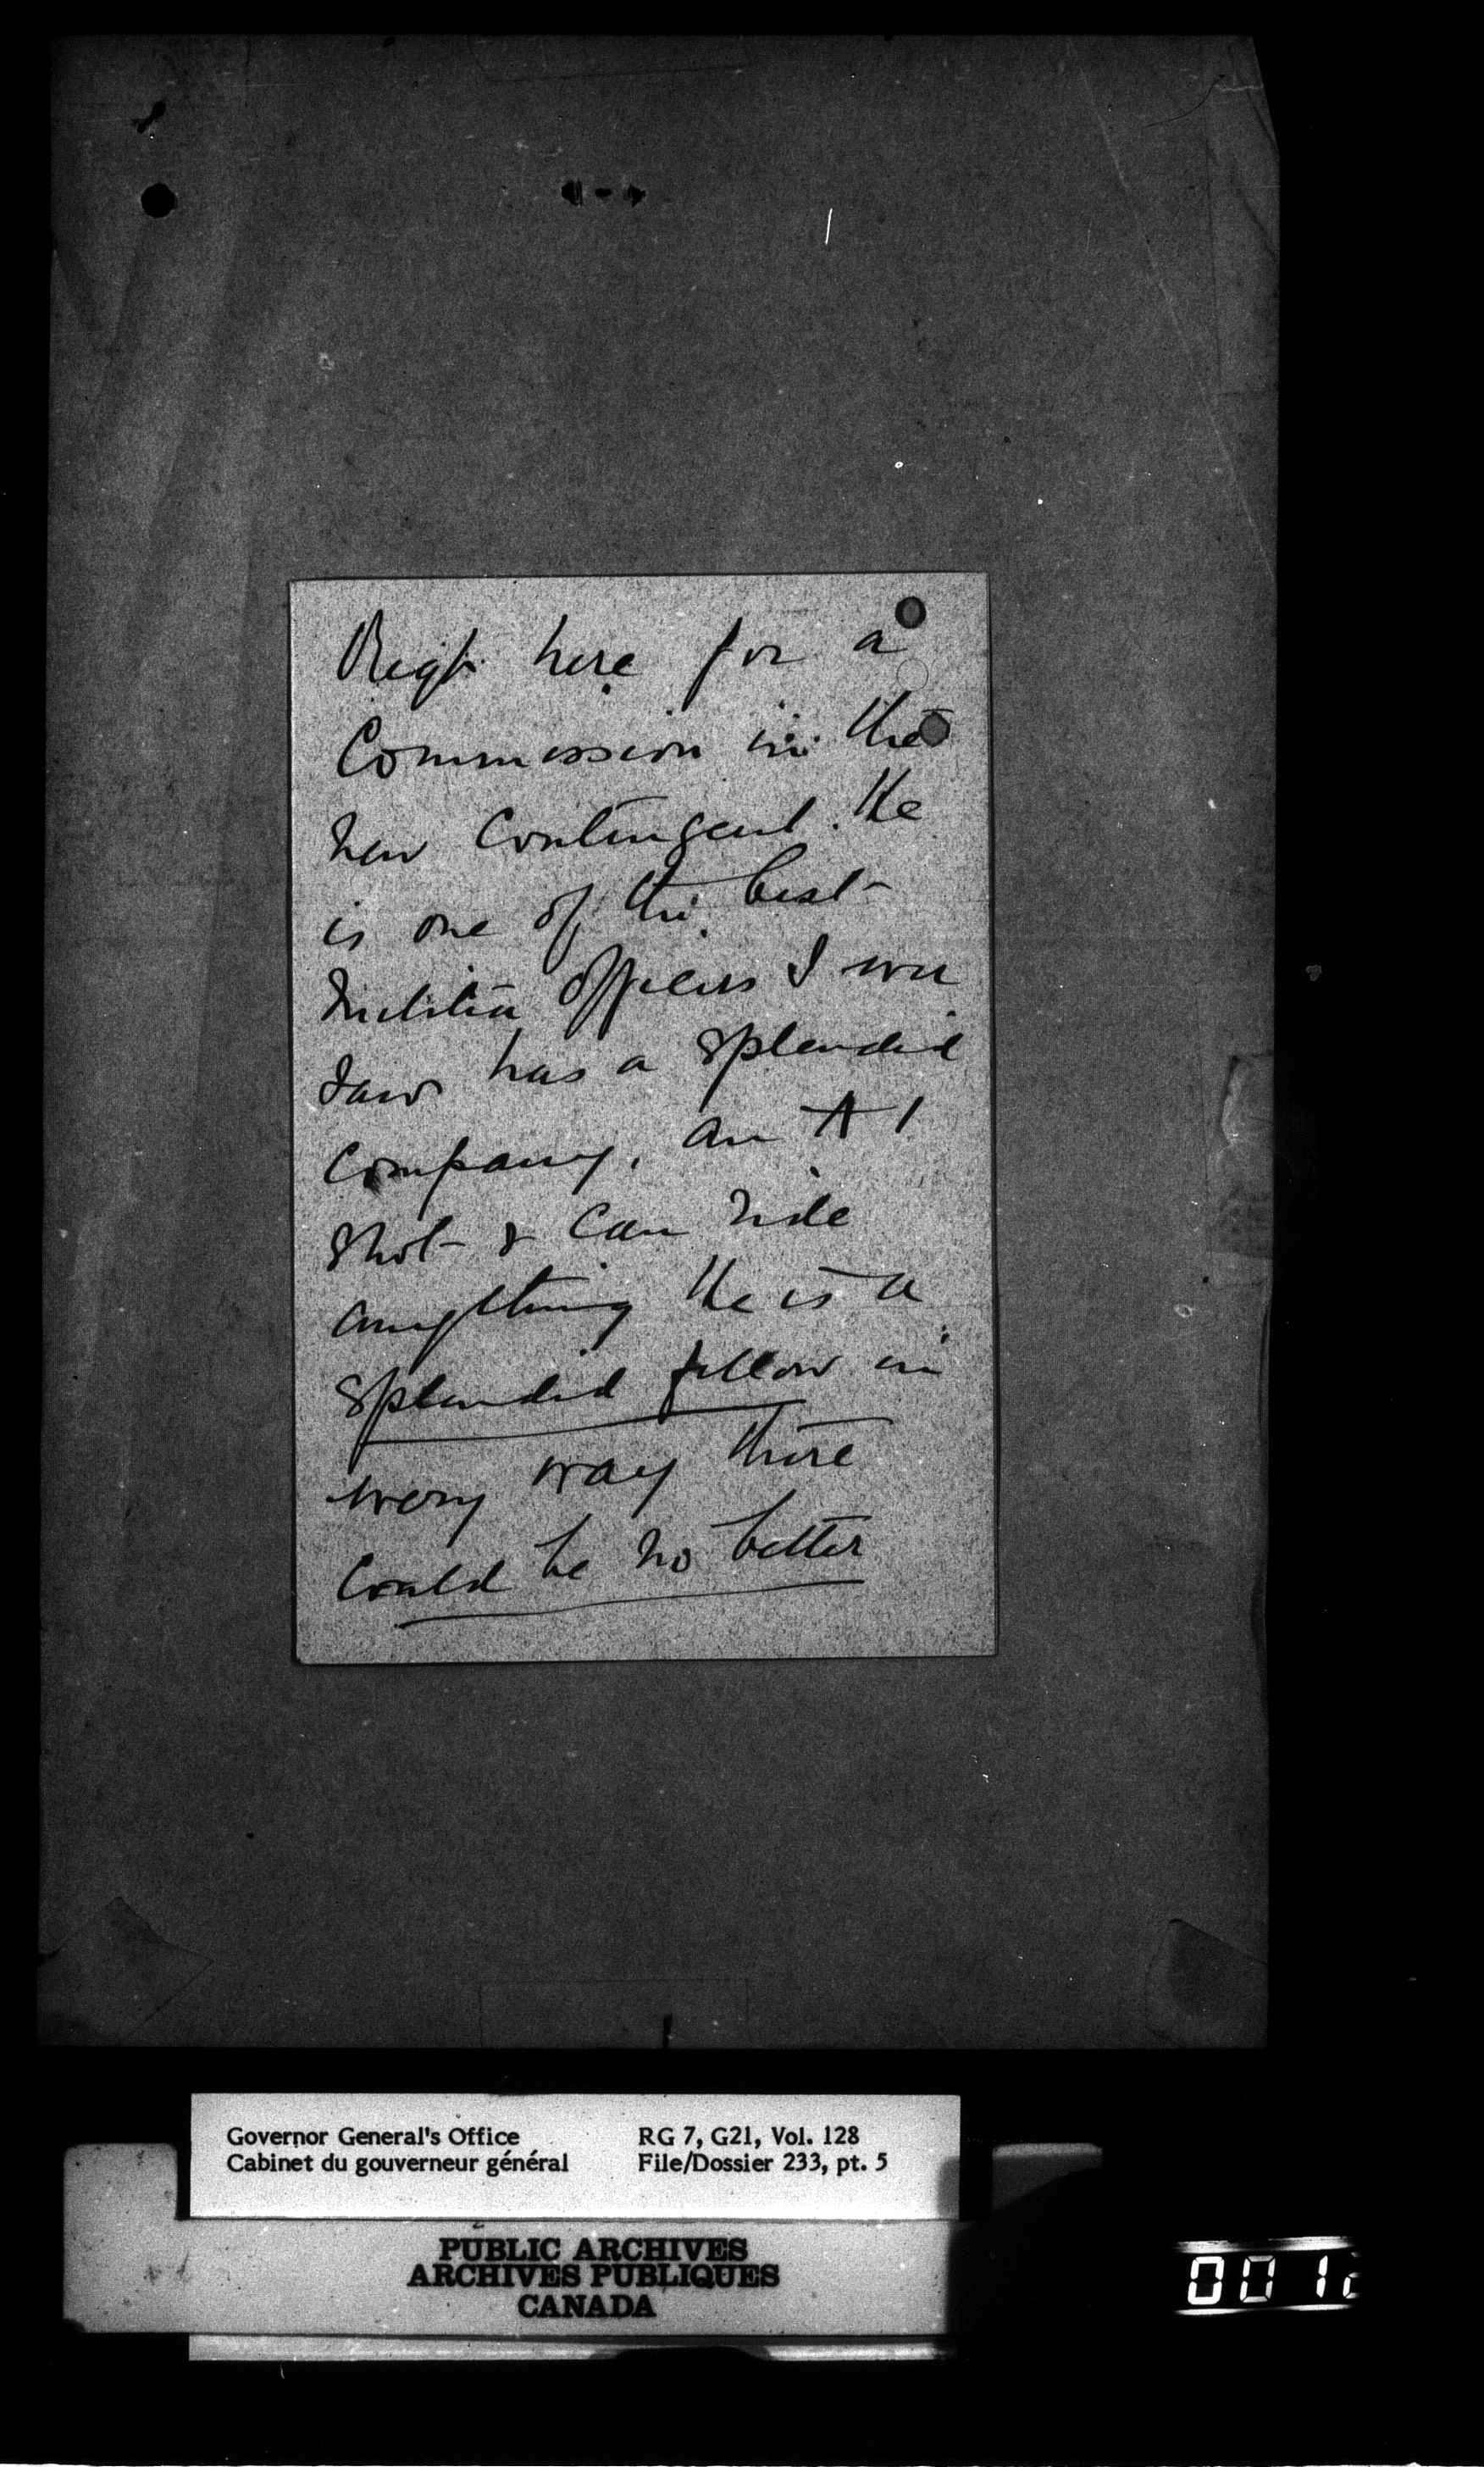 Regt here for a
Commission in the
new Contingent. He
is one of the best
Militia Officers I ever
saw has a splendid
Company, an A 1
shot & can ride
anything He is a
splendid fellow in
every way there
could be no better
Governor General's Office RG 7, G21, Vol. 128
Cabinet du gouverneur général File/Dossier 233, pt. 5
PUBLIC ARCHIVES
ARCHIVES PUBLIQUES
CANADA
001